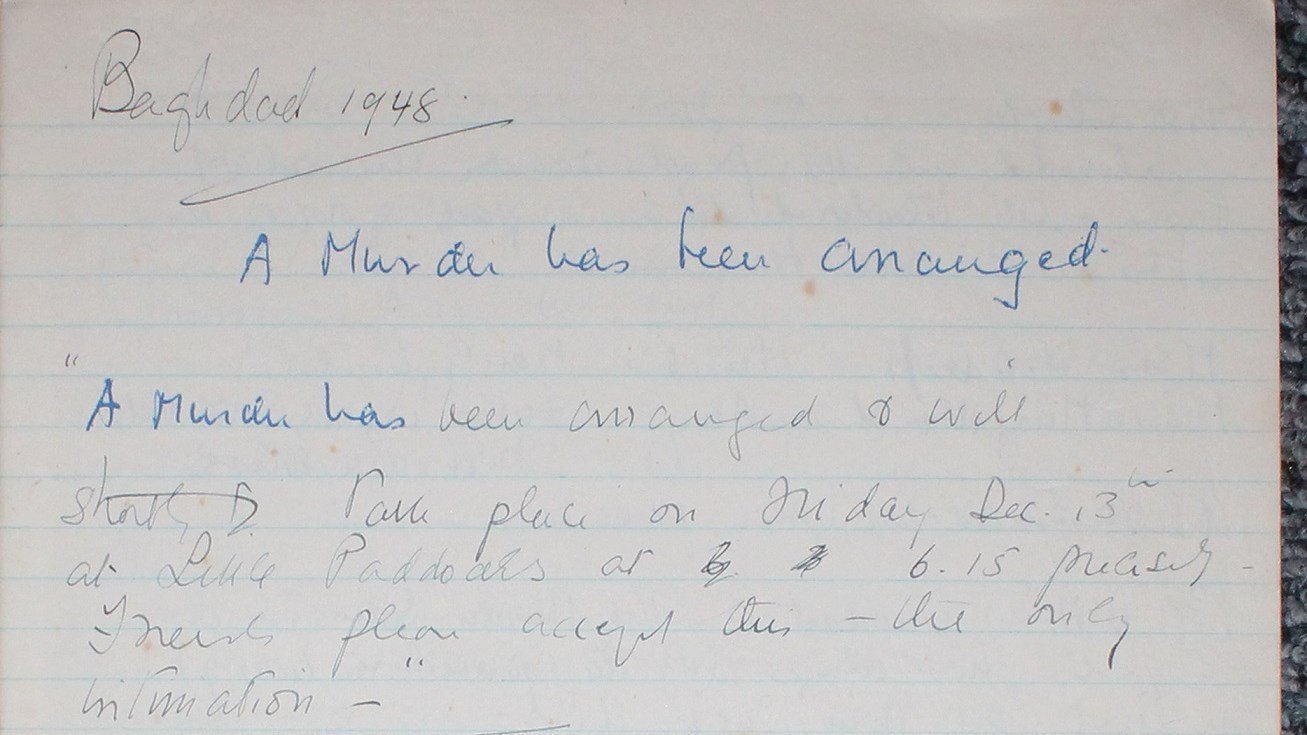 Baghdad 1948.
A Murder has been arranged.
"A Murder has been arranged & will
shortly take place on Friday Dec. 13th
at Little Paddocks at 6.15 precisely -
Friends please accept this - the only
intimation - "